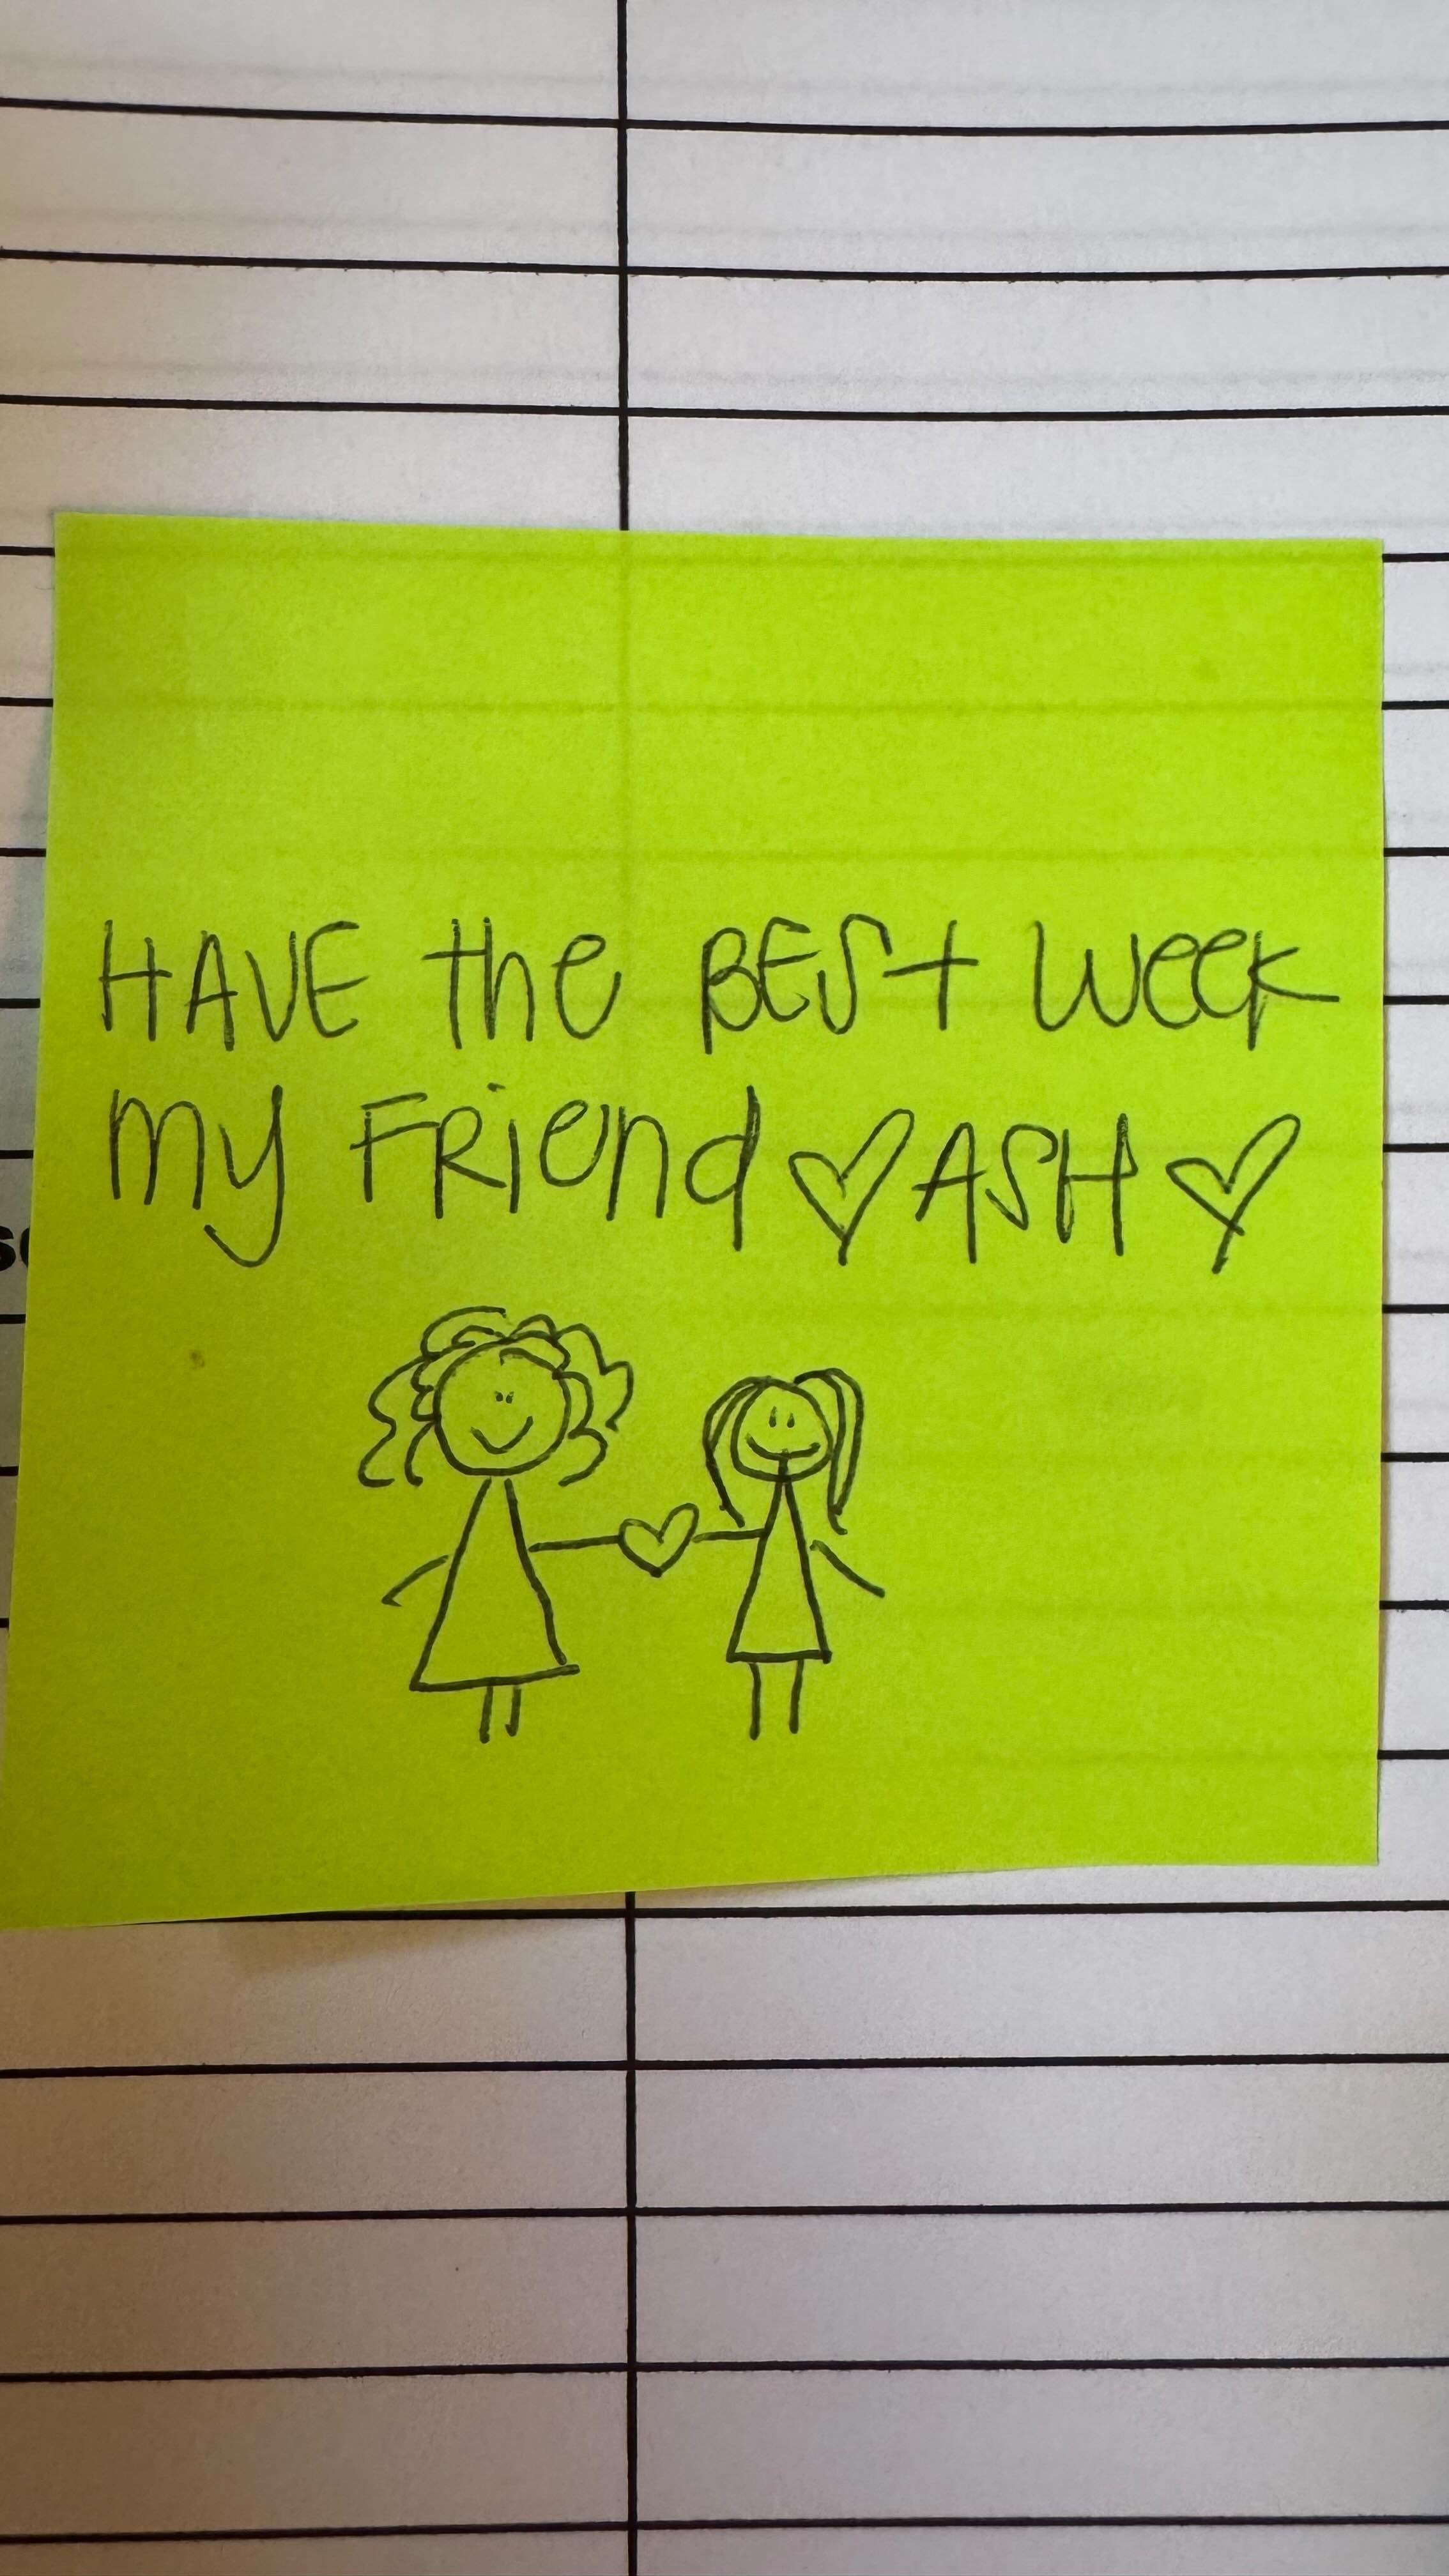 HAVE the BEST week
my FRiend ♡ ASH ♡